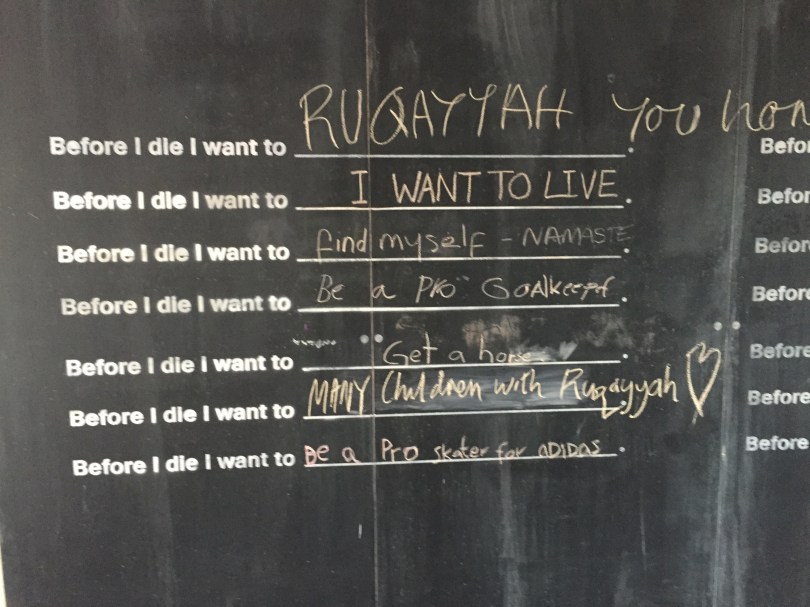 Before I die I want to RUQAYYAH you hon
Before I die I want to I WANT TO LIVE.
Before I die I want to find myself - NAMASTE.
Before I die I want to Be a PRO GoAlkeeper.
Before I die I want to Get a horse.
Before I die I want to MANY Children with Ruqayyah
Before I die I want to Be a Pro skater for ADIDAS.
Befor
Befor
Before
Before
Before
Before
Before